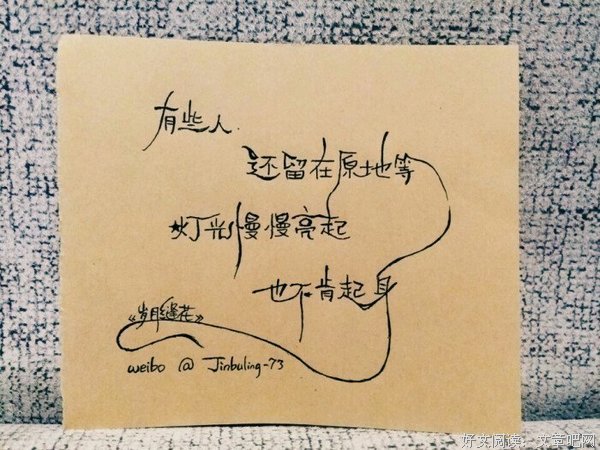 有些人.
还留在原地等
灯光慢慢亮起
也不肯起身
《岁月缝花》
weibo @ Jinbuling-73
好文阅读：文章吧网